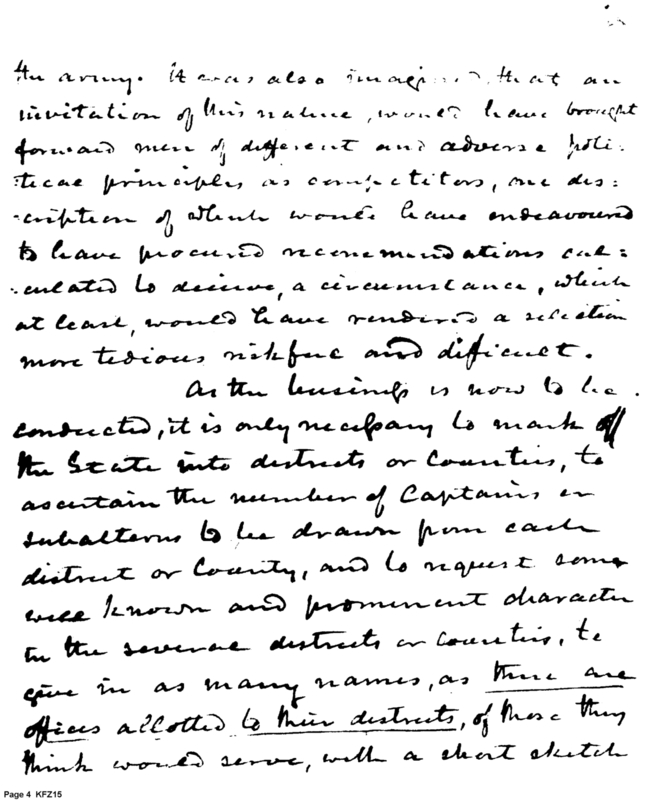 the army. It was also imagined, that an
invitation of this nature, would have brought
forward men of different and adverse poli:
:tical principles as competitors, one des:
:cription of which would have endeavoured
to have procured recommendations cal:
:culated to deceive, a circumstance, which
at least, would have rendered a selection
more tedious riskful and difficult.
As the business is now to be
conducted, it is only necessary to mark off
the State into districts or Counties, to
ascertain the number of Captains or
subalterns to be drawn from each
district or County, and to request some
well known and prominent character
in the several districts or counties, to
give in as many names, as there are
offices allotted to their districts, of those they
think would serve, with a short sketch
Page 4 KFZ15